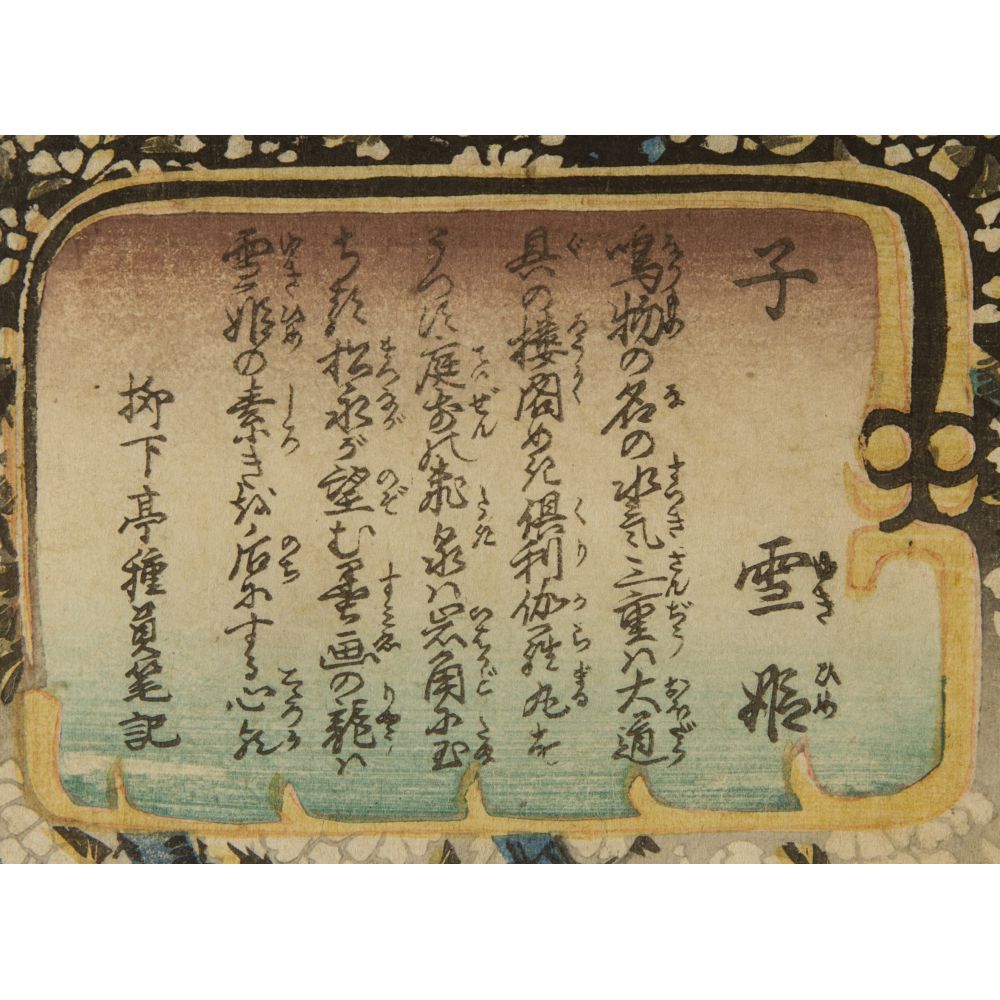 子 雪姫
鳴物の名の水気三重ハ大道
具の楼閣めき倶利伽羅丸を
うつす庭前の飛泉ハ岩角に玉
ちる松永が望む墨画の龍ハ
雪姫の素きを后にする心
柳下亭種員筆記